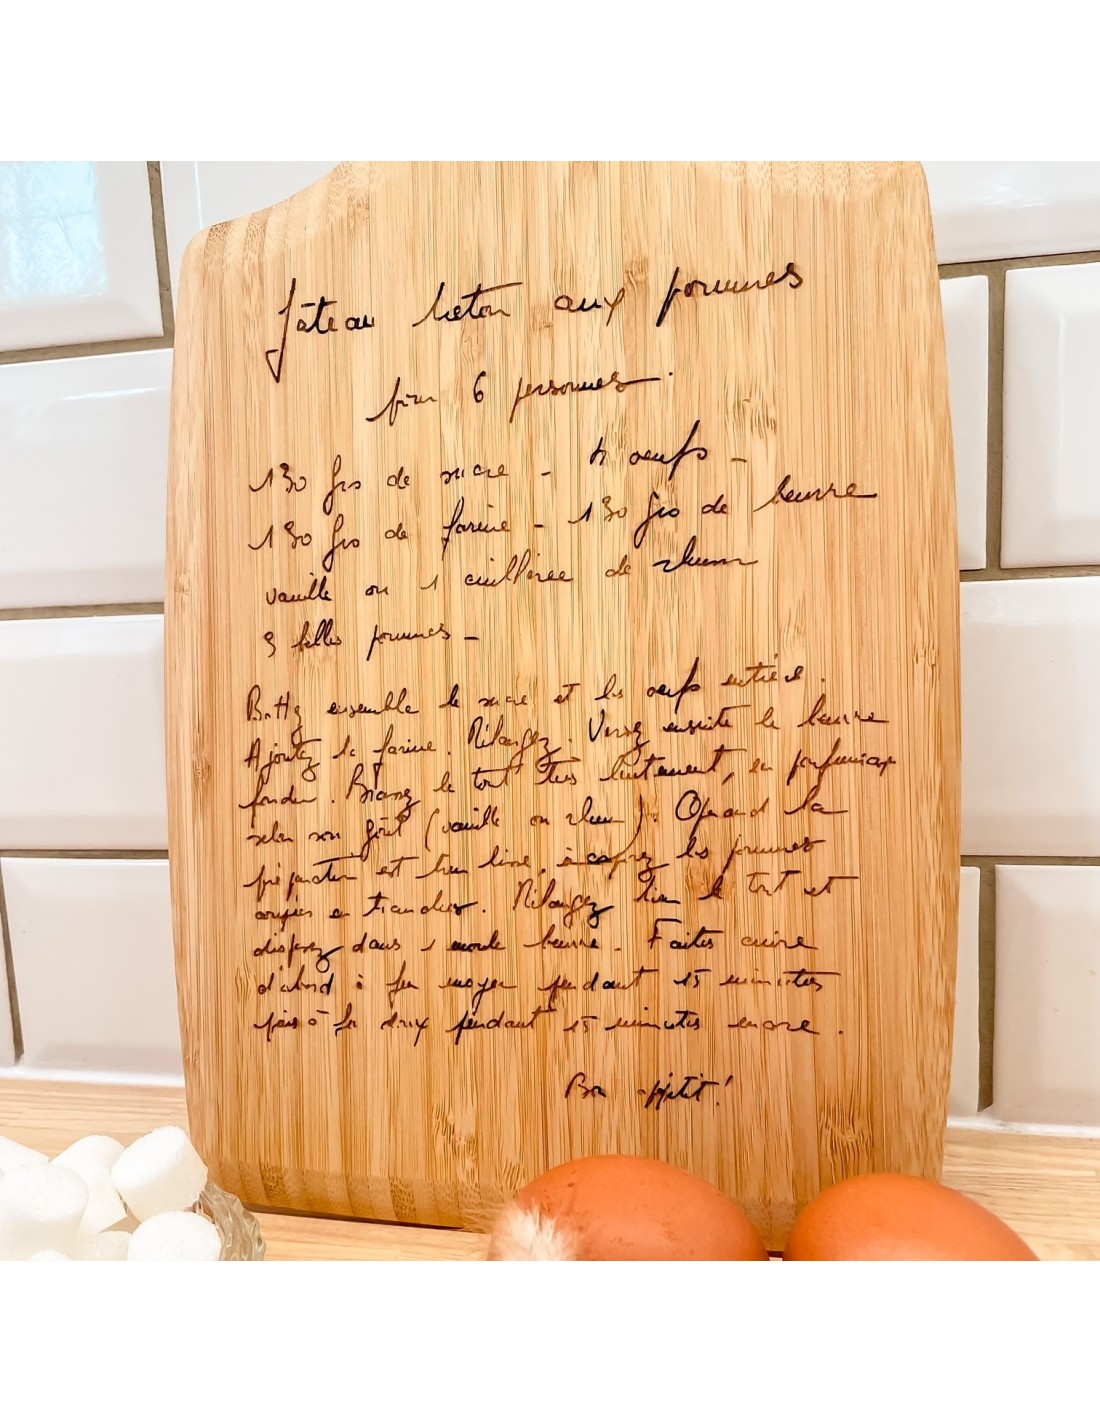 Gâteau breton aux pommes
pour 6 personnes.
130 grs de sucre - 4 oeufs -
130 grs de farine - 130 grs de beurre
vanille ou 1 cuillérée de rhum
3 belles pommes -
Battez ensemble le sucre et les oeufs entiers.
Ajoutez la farine. Mélangez. Versez ensuite le beurre
fondu. Brassez le tout très lentement, en parfumant
selon son goût (vanille ou rhum). Quand la
préparation est bien lisse, incorporez les pommes
coupées en tranches. Mélangez bien le tout et
disposez dans 1 moule beurré. Faites cuire
d'abord à feu moyen pendant 15 minutes
puis à feu doux pendant 15 minutes encore.
Bon appétit!